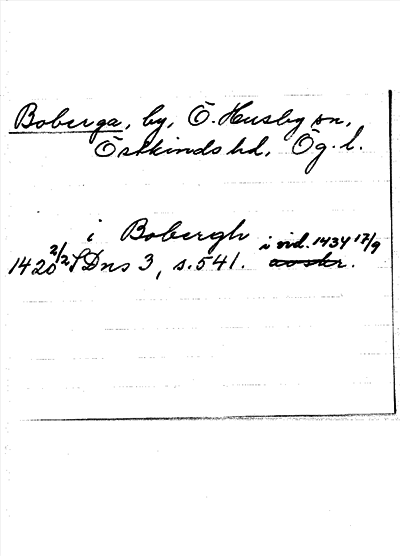 Boberga, by, Ö. Husby sn,
Östkinds hd, Ög. l.
i Bobergh i vid. 1434 17/9
1420 2/2 SDns 3, s. 541. avskr.